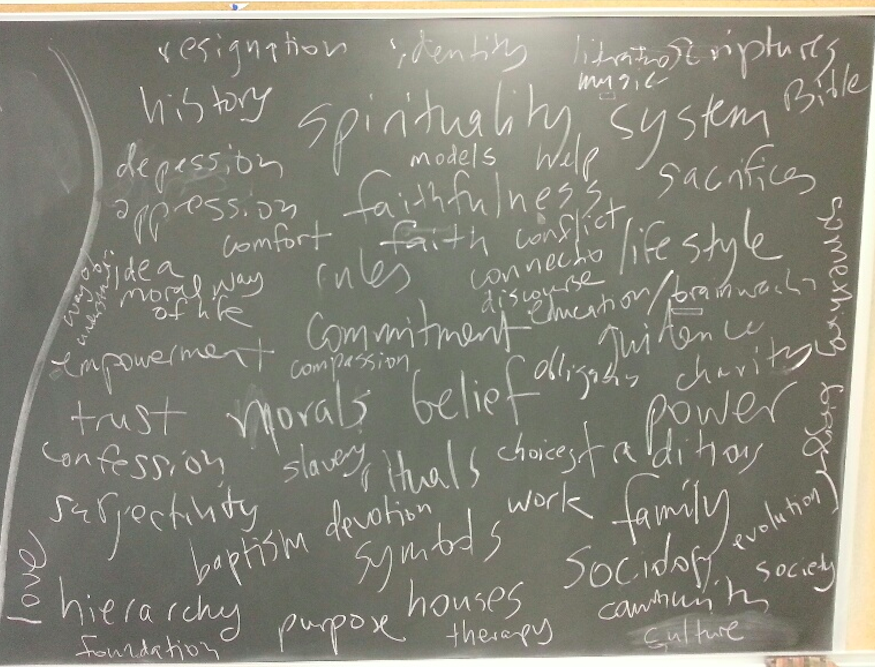 resignation identity literature scriptures
music Bible
history spirituality system
depession models help sacrifices
oppression faithfulness
comfort faith conflict lifestyle
idea rules connectio
moral way discourse education/brainwash
of life
way of understand
commitment guidence
empowerment compassion obligatns charity
trust morals belief power
confession slavery rituals choices traditions
something bigger
subjectivity baptism devotion work family evolution
symbols sociology society
love hierarchy purpose houses community
foundation therapy culture